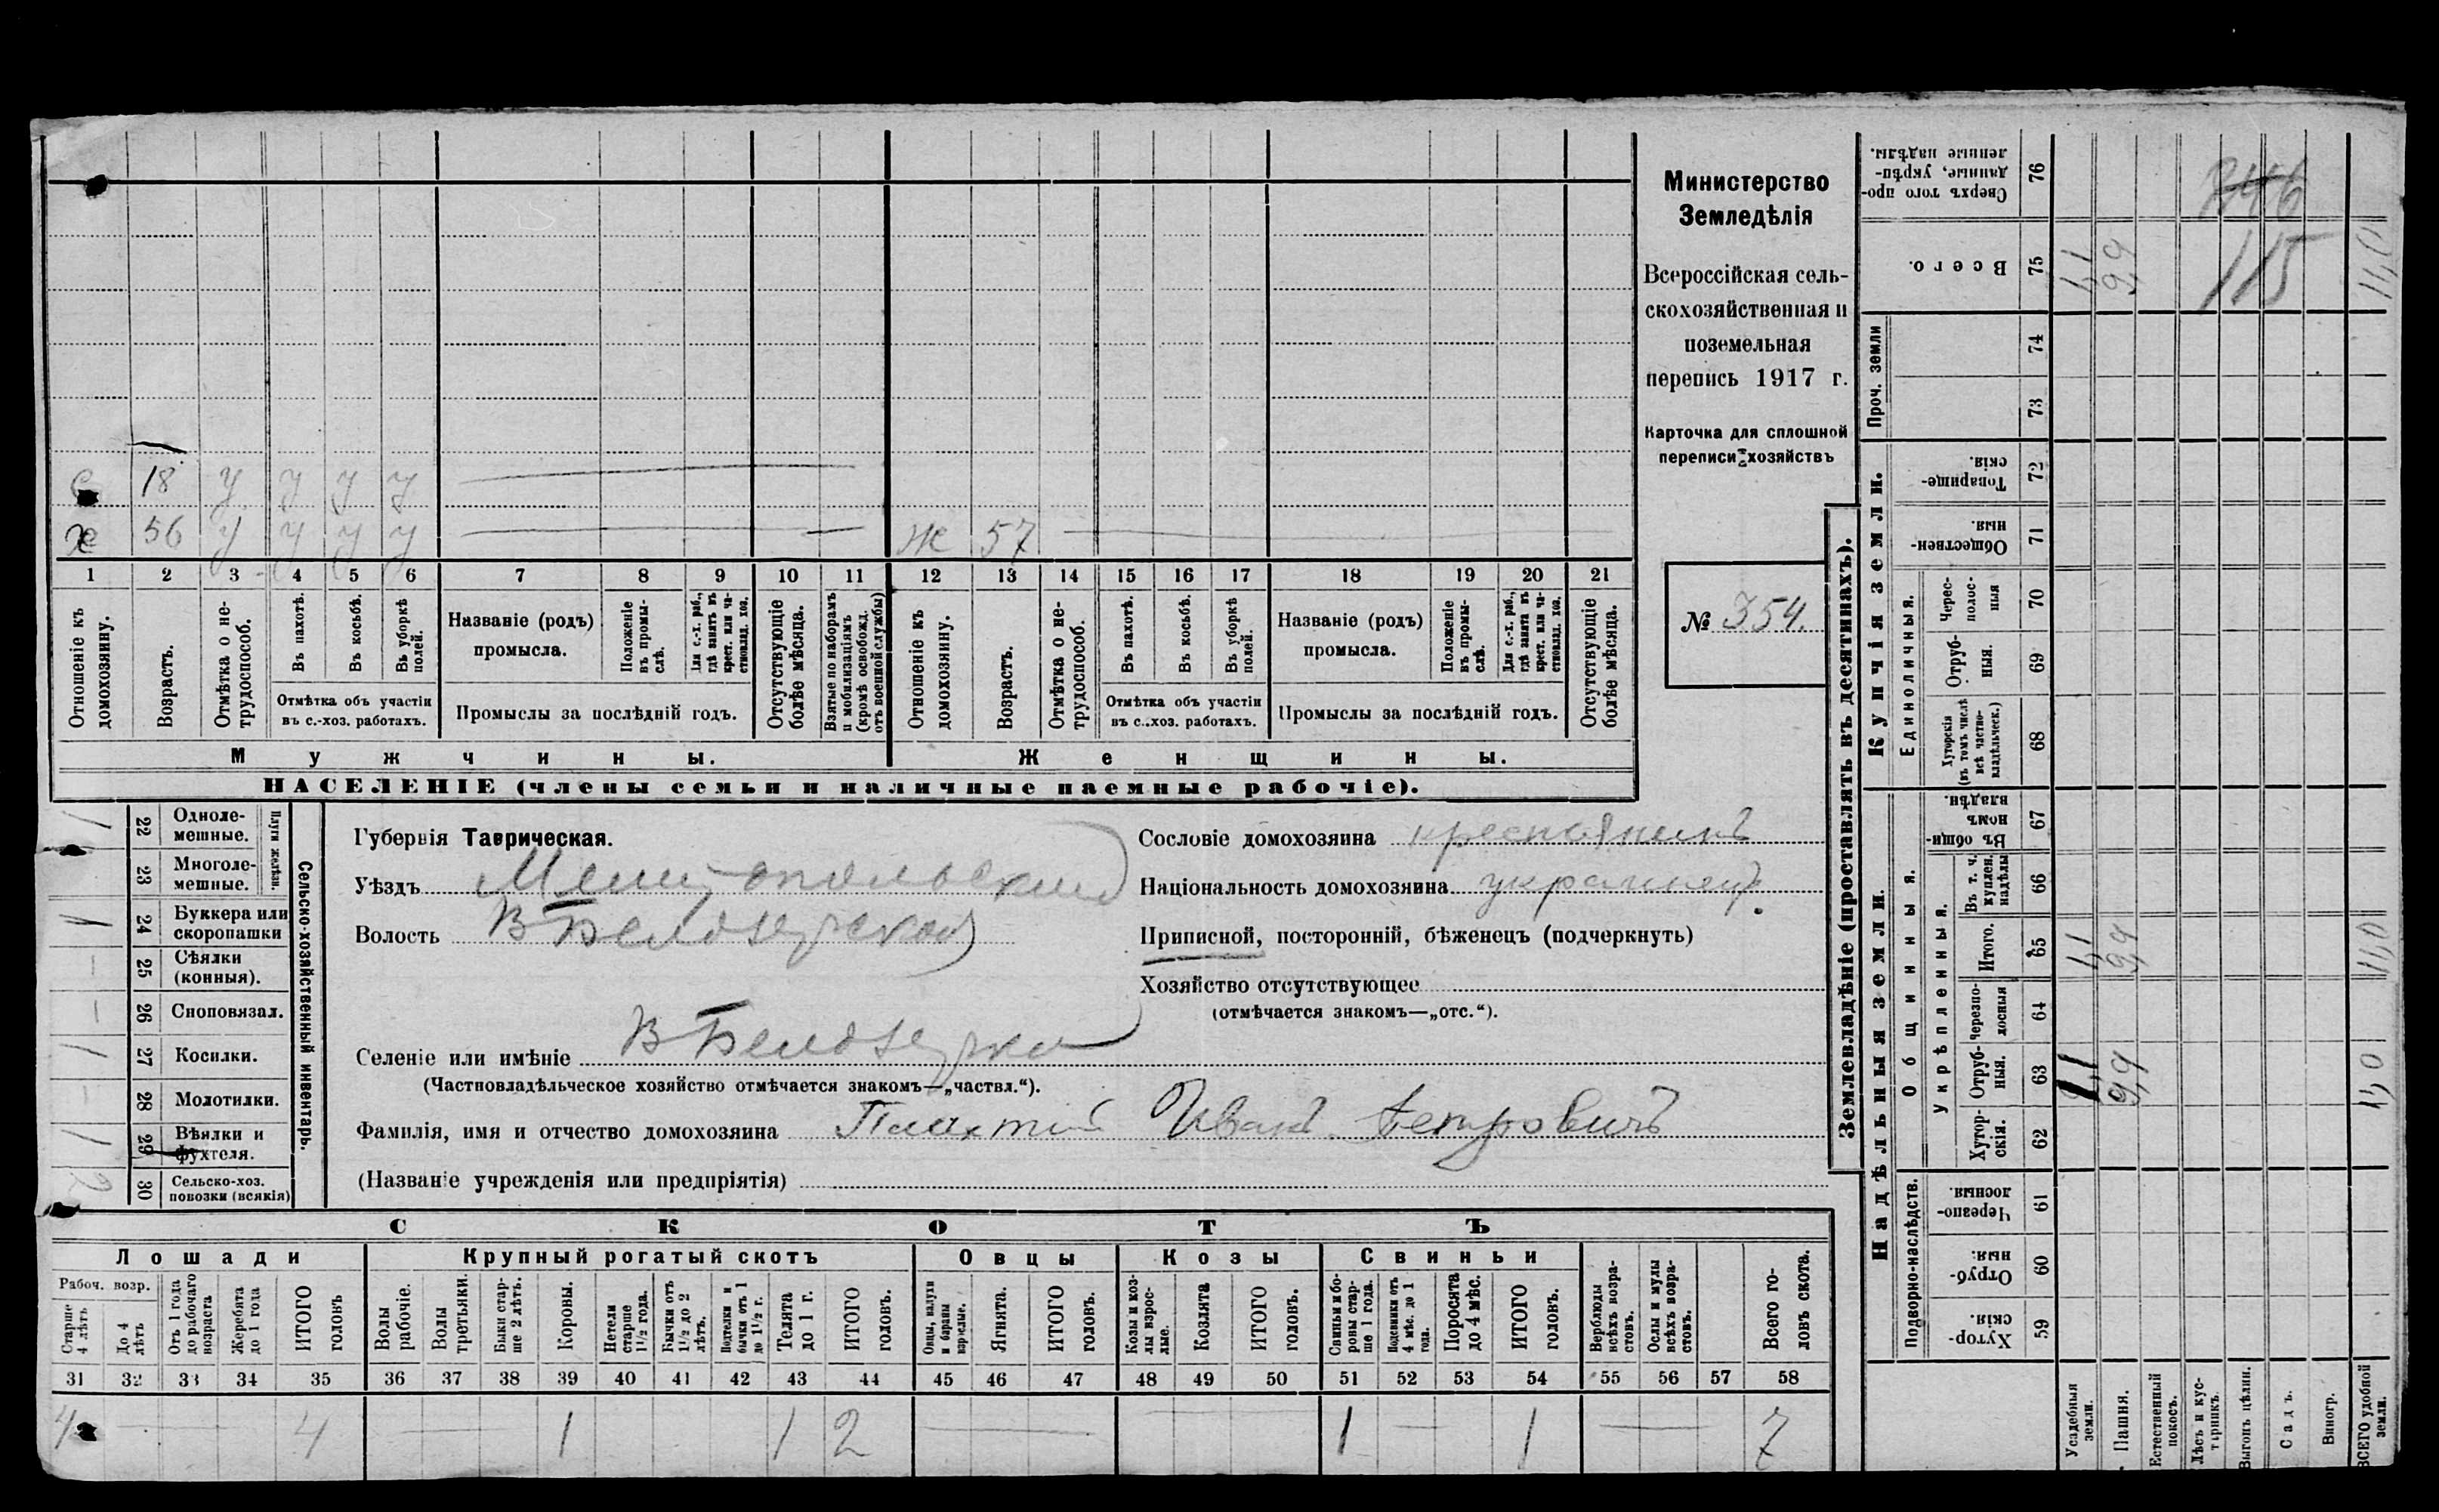 Министерство
Земледѣлія
Всероссійская сель-
скохозяйственная и
поземельная
перепись 1917 г.
Карточка для сплошной
переписи хозяйств
№ 354.
с 18 у у у у
х 56 у у у у Ж 57
1 2 3 4 5 6 7 8 9 10 11 12 13 14 15 16 17 18 19 20 21
Отношеніе къ домохозяину.
Возрастъ.
Отмѣтка о не-трудоспособ.
Въ пахотѣ.
Въ косьбѣ.
Въ уборкѣ полей.
Отмѣтка объ участіи
въ с.-хоз. работахъ.
Названіе (родъ)
промысла.
Положеніе въ промы-слѣ.
Для с.-х. раб., гдѣ занятъ въ крест. или ча-стновлад. хоз.
Промыслы за послѣдній годъ.
Отсутствующіе болѣе мѣсяца.
Взятые по наборамъ и мобилизаціямъ (кромѣ освобожд. отъ военной службы)
Отношеніе къ домохозяину.
Возрастъ.
Отмѣтка о не-трудоспособ.
Въ пахотѣ.
Въ косьбѣ.
Въ уборкѣ полей.
Отмѣтка объ участіи
въ с..хоз. работахъ.
Названіе (родъ)
промысла.
Положеніе въ промы-слѣ.
Для с.-х. раб., гдѣ занята въ крест. или ча-стновлад. хоз.
Промыслы за послѣдній годъ.
Отсутствующіе болѣе мѣсяца.
Мужчины. Женщины.
НАСЕЛЕНІЕ (члены семьи и наличные наемные рабочіе).
Сельско-хозяйственный инвентарь.
Плуги желѣзн.
22 Одноле-мешные. 1
23 Многоле-мешные.
24 Буккера или скоропашки 1
25 Сѣялки (конныя). –
26 Сноповязал. –
27 Косилки. 1
28 Молотилки. –
29 Вѣялки и фухтеля. 1
30 Сельско-хоз. повозки (всякія) 2
Губернія Таврическая.
Уѣздъ Мелитопольский
Волость В Белозерская
Селеніе или имѣніе В Белозерка
(Частновладѣльческое хозяйство отмѣчается знакомъ—„частвл.“).
Фамилія, имя и отчество домохозяина Плахтий Иванъ Петровичъ
(Названіе учрежденія или предпріятія)
Сословіе домохозяина крестьянинъ
Національность домохозяина украинец.
Приписной, посторонній, бѣженецъ (подчеркнуть)
Хозяйство отсутствующее
(отмѣчается знакомъ—„отс.“).
СКОТЪ
Лошади Крупный рогатый скотъ Овцы Козы Свиньи
Рабоч. возр.
Старше 4 лѣтъ
До 4 лѣтъ
Отъ 1 года до рабочаго возраста
Жеребята до 1 года
ИТОГО головъ
Волы рабочіе.
Волы третьяки.
Быки стар-ше 2 лѣтъ.
Коровы.
Нетели старше 1½ года.
Бычки отъ 1½ до 2 лѣтъ.
Подтелки и бычки отъ 1 до 1½ г.
Телята до 1 г.
ИТОГО головъ.
Овцы, валухи и бараны взрослые.
Ягнята.
ИТОГО головъ.
Козы и коз-лы взрос-лые.
Козлята
ИТОГО головъ.
Свиньи и бо-ровы стар-ше 1 года.
Подсвинки отъ 4 мѣс. до 1 года.
Поросята до 4 мѣс.
ИТОГО головъ.
Верблюды всѣхъ возра-стовъ.
Ослы и мулы всѣхъ возра-стовъ.
Всего го-ловъ скота.
31 32 33 34 35 36 37 38 39 40 41 42 43 44 45 46 47 48 49 50 51 52 53 54 55 56 57 58
4 4 1 1 2 1 1 7
Землевладѣніе (проставлять въ десятинахъ).
Надѣльныя земли. Купчія земли. Проч. земли
Подворно-наслѣдств.
Общинныя.
Укрѣпленныя.
Единоличныя.
59 Хутор-скія.
60 Отруб-ныя.
61 Черезпо-лосныя.
62 Хутор-скія.
63 Отруб-ныя. 1,1 9,9 11,0
64 Черезпо-лосныя
65 Итого. 1,1 9,9 11,0
66 Въ т. ч. куплен. надѣлы
67 Въ общин-номъ владѣн.
68 Хуторскія (въ томъ числѣ всѣ частно-владѣльческ.)
69 Отруб-ныя.
70 Черес-полос-ныя
71 Обществен-ныя.
72 Товарище-скія.
73
74
75 Всего. 1,1 9,9 115 11,0
76 Сверхъ того про-данные, укрѣп-ленные надѣлы.
Усадебныя земли.
Пашня.
Естественный покосъ.
Лѣсъ и кус-тарникъ.
Выгонъ цѣлин.
Садъ.
Виногр.
ВСЕГО удобной земли.